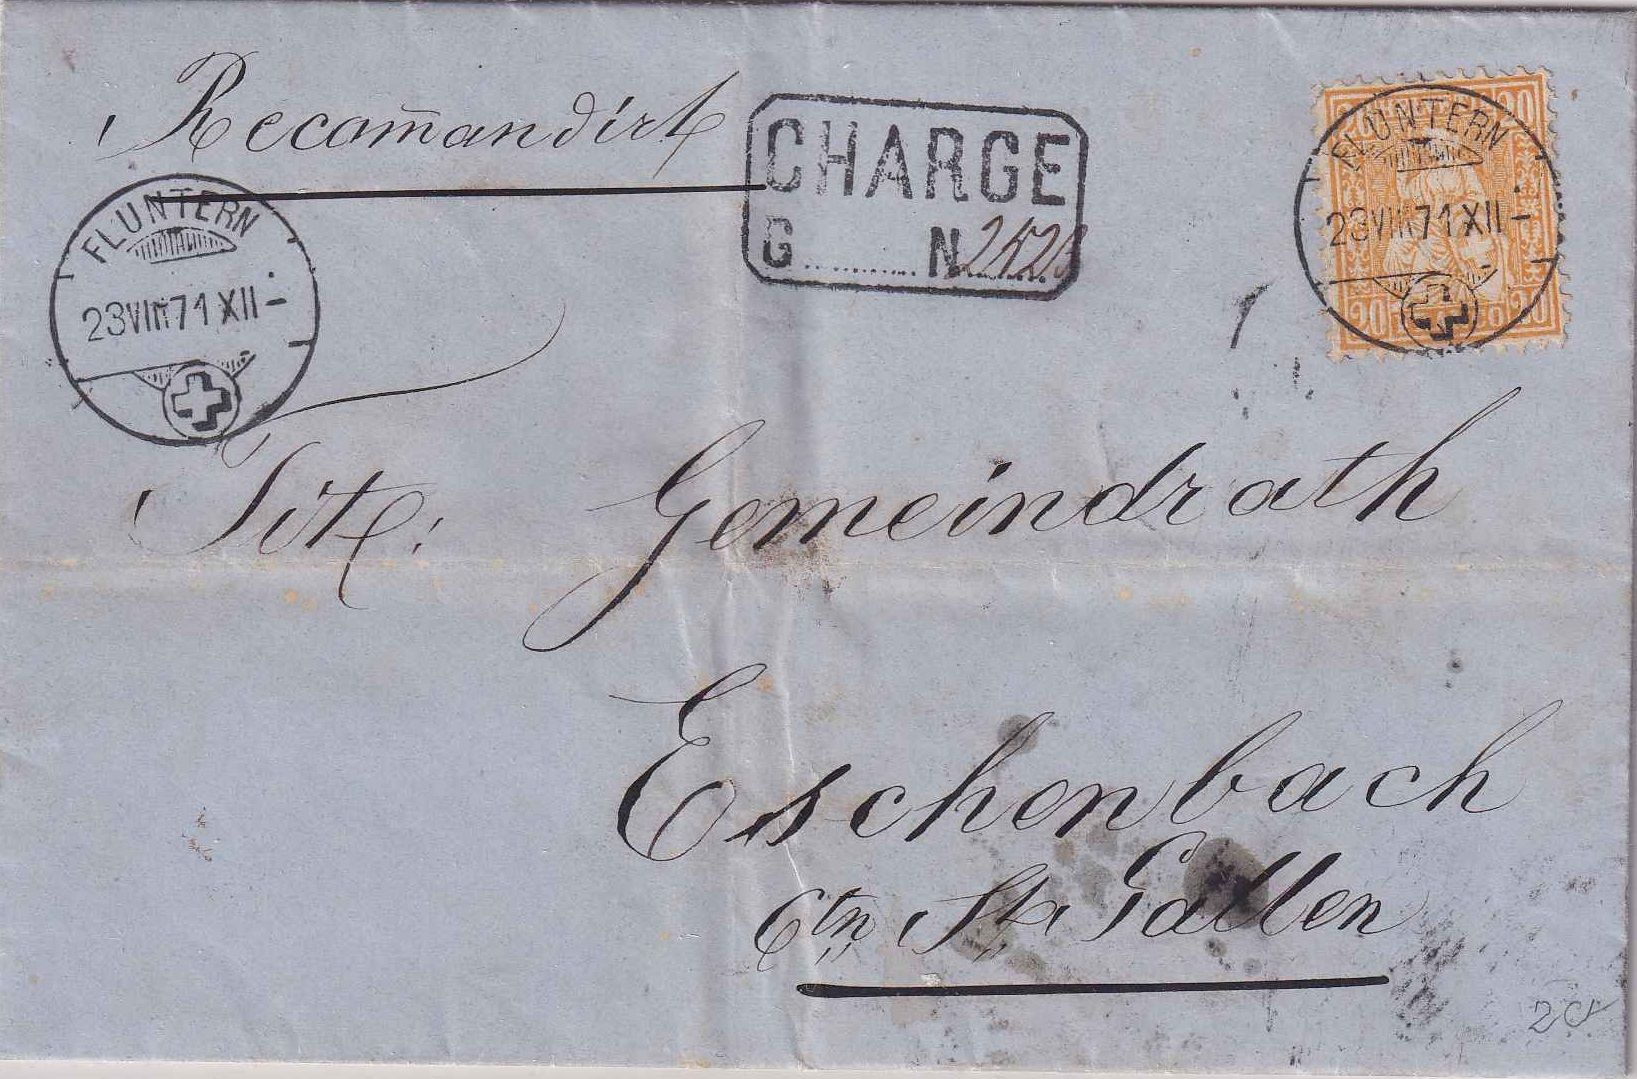 Recom̄andirt
CHARGE
G.......... N
FLUNTERN
23 VIII 71 XII -
FLUNTERN
23 VIII 71 XII -
20 20
20 20
Tit. Gemeindrath
Eschenbach
Ctn St. Gallen